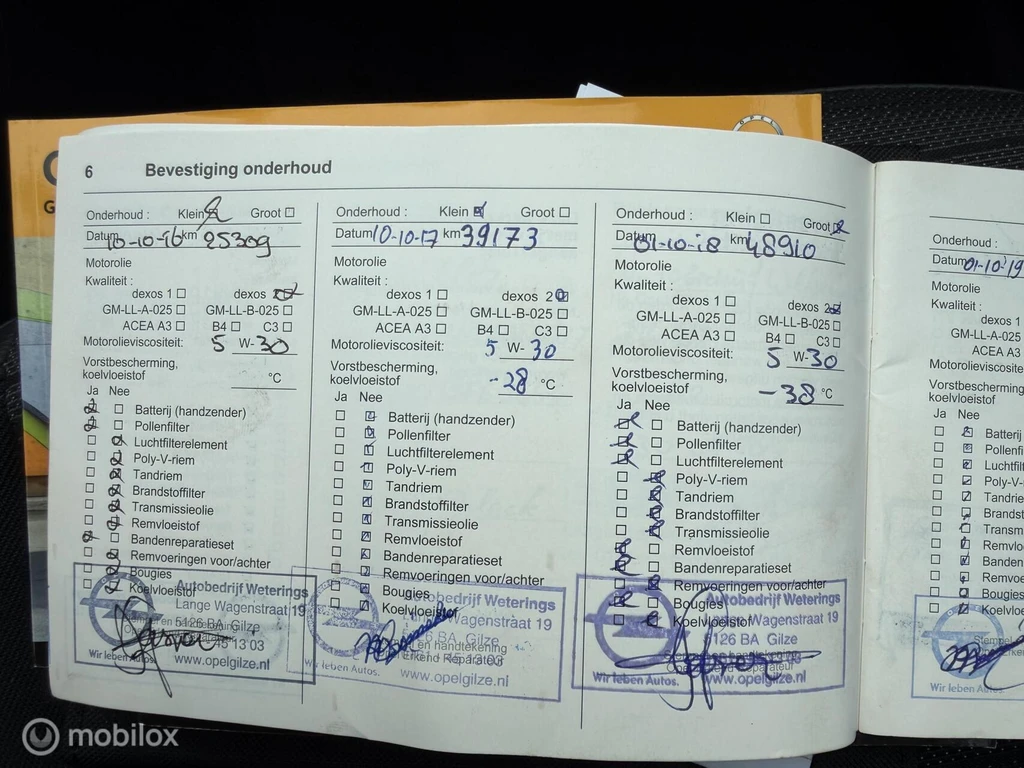 OPEL
6 Bevestiging onderhoud
Onderhoud : Klein Groot
Datum 10-10-16 km 25309
Motorolie
Kwaliteit :
dexos 1 dexos 2
GM-LL-A-025 GM-LL-B-025
ACEA A3 B4 C3
Motorolieviscositeit: 5 W-30
Vorstbescherming,
koelvloeistof °C
Ja Nee
Batterij (handzender)
Pollenfilter
Luchtfilterelement
Poly-V-riem
Tandriem
Brandstoffilter
Transmissieolie
Remvloeistof
Bandenreparatieset
Remvoeringen voor/achter
Bougies
Koelvloeistof
Autobedrijf Weterings
Lange Wagenstraat 19
5126 BA Gilze
45 13 03
Wir leben Autos.
www.opelgilze.nl
Onderhoud : Klein Groot
Datum 10-10-17 km 39173
Motorolie
Kwaliteit :
dexos 1 dexos 2
GM-LL-A-025 GM-LL-B-025
ACEA A3 B4 C3
Motorolieviscositeit: 5 W-30
Vorstbescherming,
koelvloeistof -28 °C
Ja Nee
Batterij (handzender)
Pollenfilter
Luchtfilterelement
Poly-V-riem
Tandriem
Brandstoffilter
Transmissieolie
Remvloeistof
Bandenreparatieset
Remvoeringen voor/achter
Bougies
Koelvloeistof
Weterings
Wagenstraat 19
BA Gilze
en handtekening
Erkend Reparateur
Wir leben Autos.
www.opelgilze.nl
Onderhoud : Klein Groot
Datum 01-10-18 km 48910
Motorolie
Kwaliteit :
dexos 1 dexos 2
GM-LL-A-025 GM-LL-B-025
ACEA A3 B4 C3
Motorolieviscositeit: 5 W-30
Vorstbescherming,
koelvloeistof -38 °C
Ja Nee
Batterij (handzender)
Pollenfilter
Luchtfilterelement
Poly-V-riem
Tandriem
Brandstoffilter
Transmissieolie
Remvloeistof
Bandenreparatieset
Remvoeringen voor/achter
Bougies
Koelvloeistof
Autobedrijf Weterings
Wagenstraat 19
5126 BA Gilze
Wir leben Autos.
www.opelgilze.nl
Onderhoud :
Datum 01-10-19
Motorolie
Kwaliteit :
dexos 1
GM-LL-A-025
ACEA A3
Motorolieviscosite
Vorstbescherming,
koelvloeistof
Ja Nee
Batterij
Pollenfil
Luchtfil
Poly-V
Tandri
Brandst
Transm
Remvlo
Banden
Remvo
Bougies
Koelvlo
Stempel
Wir leben Autos.
mobilox